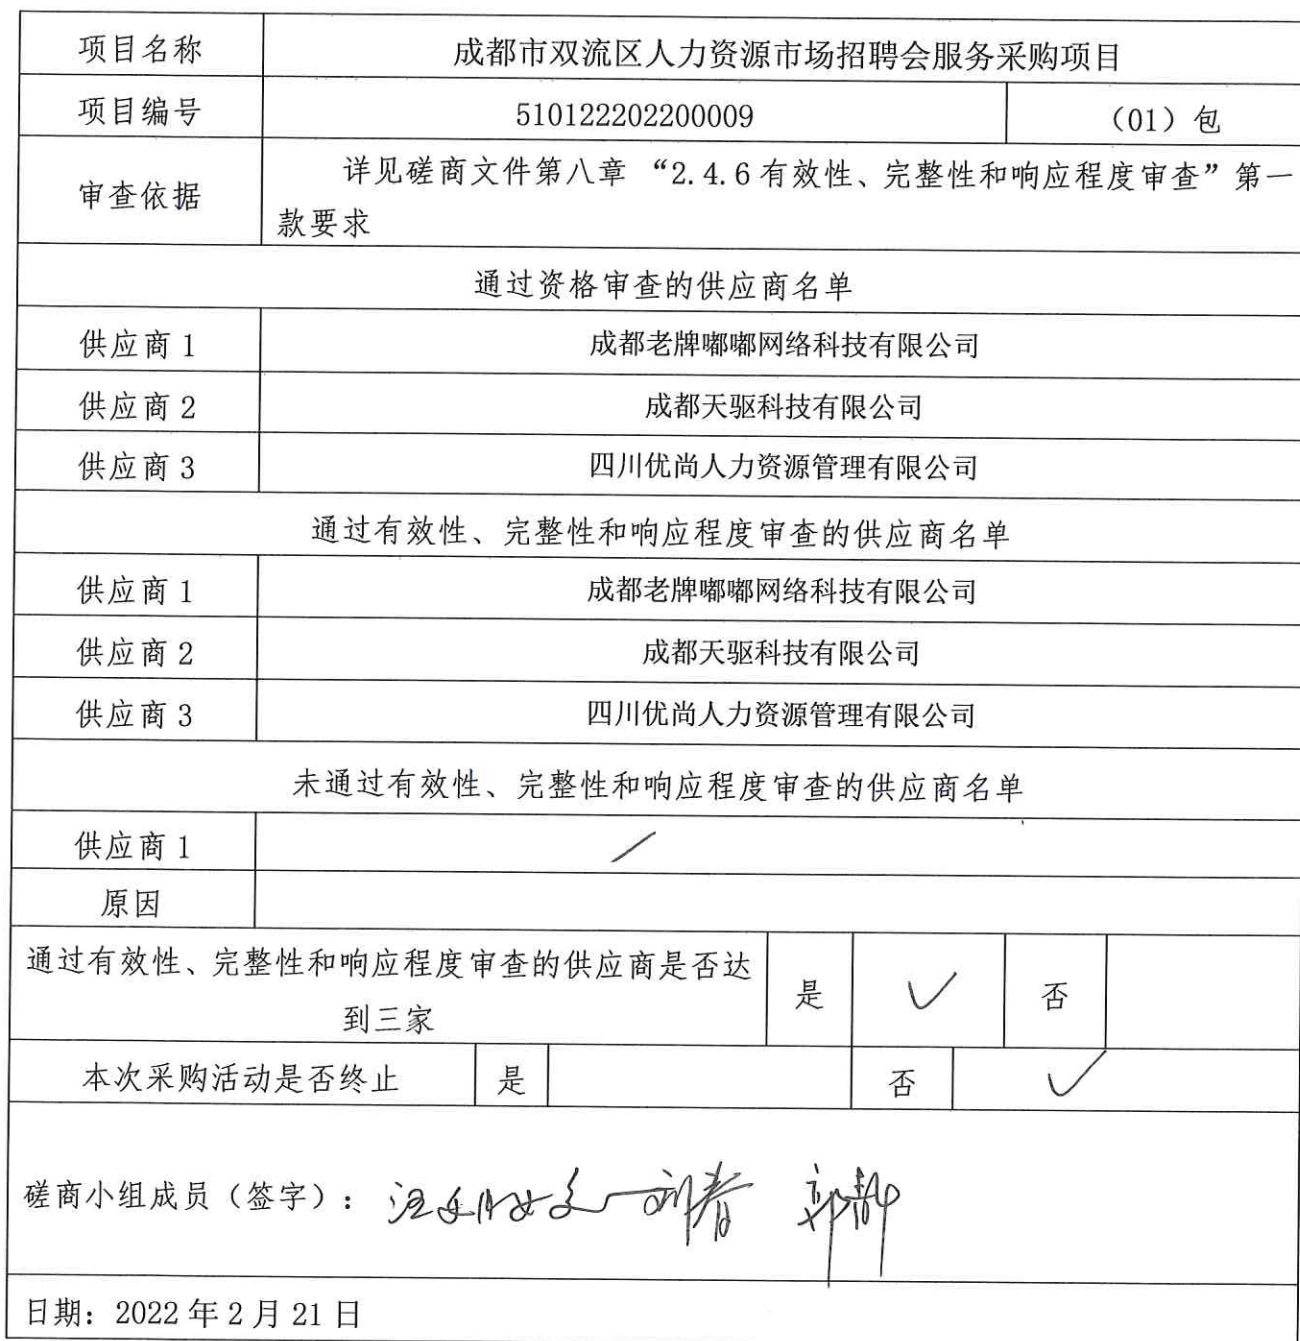 项目名称 成都市双流区人力资源市场招聘会服务采购项目
项目编号 510122202200009 （01）包
审查依据 详见磋商文件第八章 “2.4.6 有效性、完整性和响应程度审查”第一
款要求
通过资格审查的供应商名单
供应商 1 成都老牌嘟嘟网络科技有限公司
供应商 2 成都天驱科技有限公司
供应商 3 四川优尚人力资源管理有限公司
通过有效性、完整性和响应程度审查的供应商名单
供应商 1 成都老牌嘟嘟网络科技有限公司
供应商 2 成都天驱科技有限公司
供应商 3 四川优尚人力资源管理有限公司
未通过有效性、完整性和响应程度审查的供应商名单
供应商 1 /
原因
通过有效性、完整性和响应程度审查的供应商是否达
到三家 是 ✓ 否
本次采购活动是否终止 是 否 ✓
磋商小组成员（签字）： 刘春 郭静
日期：2022 年 2 月 21 日